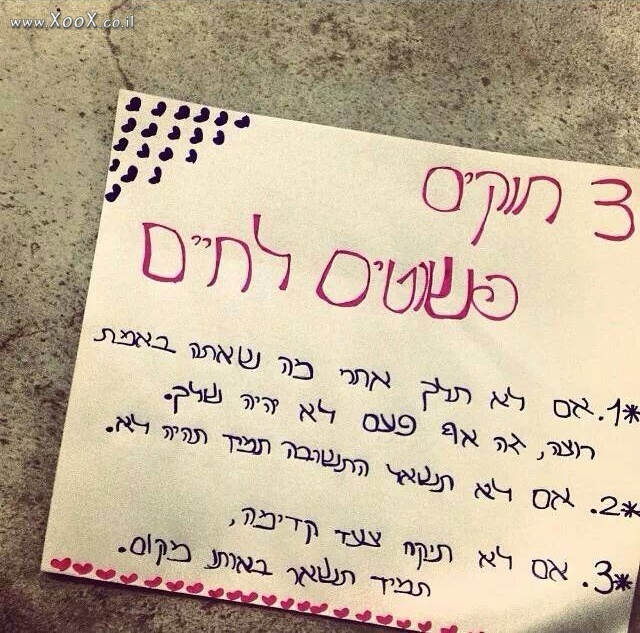 www.XooX.co.il
3 חוקים
פשוטים לחיים
*1. אם לא תלך אחרי מה שאתה באמת
רוצה, זה אף פעם לא יהיה שלך.
*2. אם לא תשאל התשובה תמיד תהיה לא.
*3. אם לא תיקח צעד קדימה,
תמיד תשאר באותו מקום.